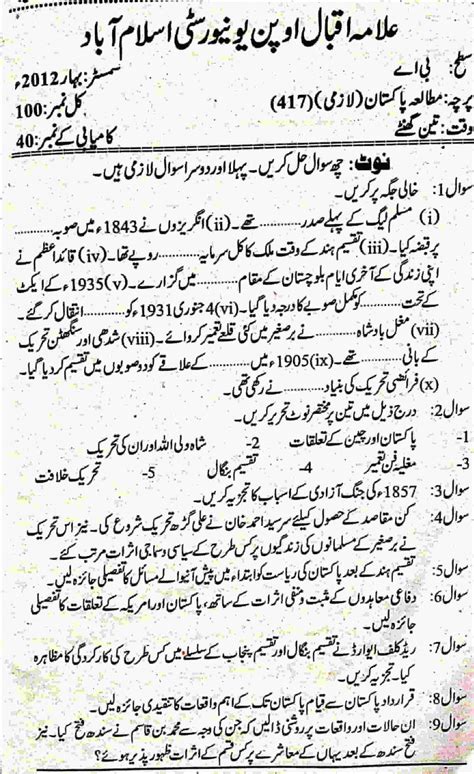 علامہ اقبال اوپن یونیورسٹی اسلام آباد
سطح: بی اے سمسٹر: بہار 2012ء
پرچہ: مطالعہ پاکستان (لازمی) (417) کل نمبر: 100
وقت: تین گھنٹے کامیابی کے نمبر: 40
نوٹ: چھ سوال حل کریں۔ پہلا اور دوسرا سوال لازمی ہیں۔
سوال 1: خالی جگہ پر کریں۔
(i) مسلم لیگ کے پہلے صدر.........تھے۔ (ii) انگریزوں نے 1843ء میں صوبہ.........
پر قبضہ کیا۔ (iii) تقسیم ہند کے وقت ملک کا کل سرمایہ.........روپے تھا۔ (iv) قائداعظم نے
اپنی زندگی کے آخری ایام بلوچستان کے مقام.........میں گزارے۔ (v) 1935ء کے ایکٹ
کے تحت.........کو مکمل صوبے کا درجہ دیا گیا۔ (vi) 4 جنوری 1931ء کو.........انتقال کر گئے۔
(vii) مغل بادشاہ.........نے برصغیر میں کئی قلعے تعمیر کروائے۔ (viii) شدھی اور سنگھٹن تحریک
کے بانی.........تھے۔ (ix) 1905ء میں.........کے علاقے کو دو صوبوں میں تقسیم کر دیا گیا۔
(x) فرائضی تحریک کی بنیاد.........نے رکھی تھی۔
سوال 2: درج ذیل میں تین پر مختصر نوٹ تحریر کریں۔
1- پاکستان اور چین کے تعلقات 2- شاہ ولی اللہ اور ان کی تحریک
3- مغلیہ فن تعمیر 4- تقسیم بنگال 5- تحریک خلافت
سوال 3: 1857ء کی جنگ آزادی کے اسباب کا تجزیہ کریں۔
سوال 4: کن مقاصد کے حصول کیلئے سرسید احمد خان نے علی گڑھ تحریک شروع کی۔ نیز اس تحریک
نے برصغیر کے مسلمانوں کی زندگیوں پر کس طرح کے سیاسی و سماجی اثرات مرتب کئے۔
سوال 5: تقسیم ہند کے بعد پاکستان کی ریاست کو ابتداء میں پیش آنیوالے مسائل کا تفصیلی جائزہ لیں۔
سوال 6: دفاعی معاہدوں کے مثبت و منفی اثرات کے ساتھ، پاکستان اور امریکہ کے تعلقات کا تفصیلی
جائزہ لیں۔
سوال 7: ریڈ کلف ایوارڈ نے تقسیم بنگال اور تقسیم پنجاب کے سلسلے میں کس طرح کی کارکردگی کا مظاہرہ
کیا۔ تجزیہ کریں۔
سوال 8: قرارداد پاکستان سے قیام پاکستان تک کے اہم واقعات کا تنقیدی جائزہ لیں۔
سوال 9: ان حالات اور واقعات پر روشنی ڈالیں کہ جن کی وجہ سے محمد بن قاسم نے سندھ فتح کیا۔ نیز فتح
سندھ کے بعد یہاں کے معاشرے پر کس قسم کے اثرات ظہور پذیر ہوئے؟